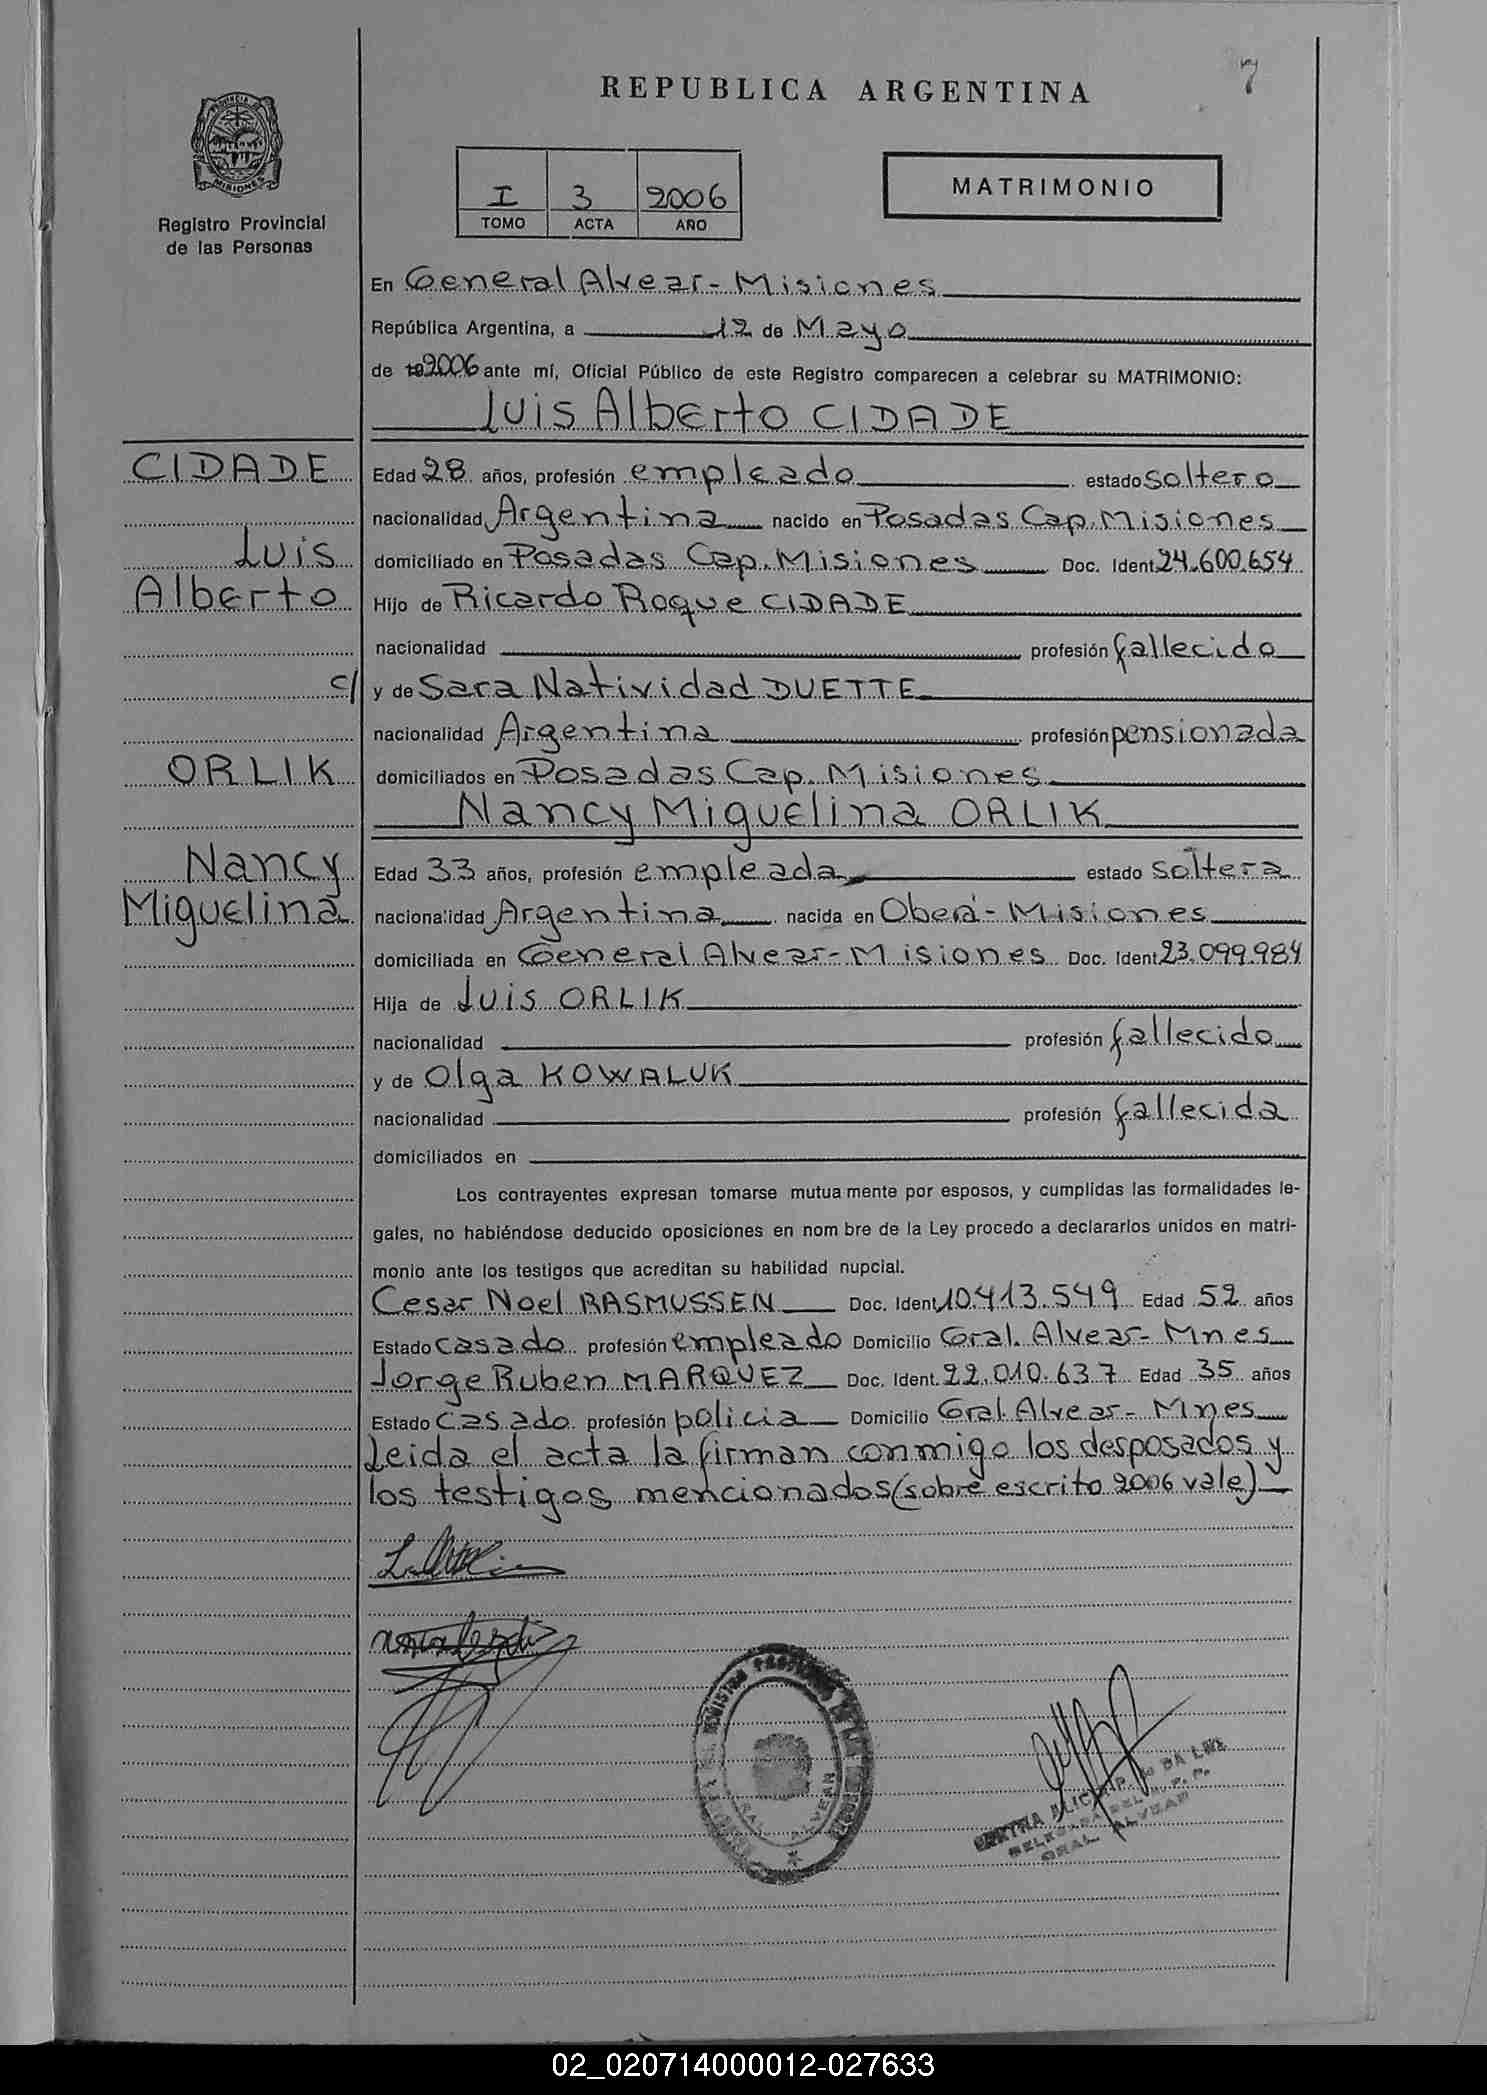 7
REPUBLICA ARGENTINA
PROVINCIA DE
MISIONES
Registro Provincial
de las Personas
I 3 2006
TOMO ACTA AÑO
MATRIMONIO
En General Alvear - Misiones
República Argentina, a 12 de Mayo
de 2006 ante mí, Oficial Público de este Registro comparecen a celebrar su MATRIMONIO:
Luis Alberto CIDADE
CIDADE
Luis
Alberto
c/
ORLIK
Nancy
Miguelina
Edad 28 años, profesión empleado estado soltero
nacionalidad Argentina nacido en Posadas Cap. Misiones
domiciliado en Posadas Cap. Misiones Doc. Ident 24.600.654
Hijo de Ricardo Roque CIDADE
nacionalidad profesión fallecido
y de Sara Natividad DUETTE
nacionalidad Argentina profesión pensionada
domiciliados en Posadas Cap. Misiones
Nancy Miguelina ORLIK
Edad 33 años, profesión empleada estado soltera
nacionalidad Argentina nacida en Oberá - Misiones
domiciliada en General Alvear - Misiones Doc. Ident 23.099.984
Hija de Luis ORLIK
nacionalidad profesión fallecido
y de Olga KOWALUK
nacionalidad profesión fallecida
domiciliados en
Los contrayentes expresan tomarse mutua mente por esposos, y cumplidas las formalidades le-
gales, no habiéndose deducido oposiciones en nom bre de la Ley procedo a declararlos unidos en matri-
monio ante los testigos que acreditan su habilidad nupcial.
Cesar Noel RASMUSSEN Doc. Ident 10.413.549 Edad 52 años
Estado casado profesión empleado Domicilio Gral. Alvear - Mnes
Jorge Ruben MARQUEZ Doc. Ident. 22.010.637 Edad 35 años
Estado casado profesión policia Domicilio Gral. Alvear - Mnes
Leida el acta la firman conmigo los desposados y
los testigos mencionados (sobre escrito 2006 vale)
GRAL. ALVEAR
02_020714000012-027633